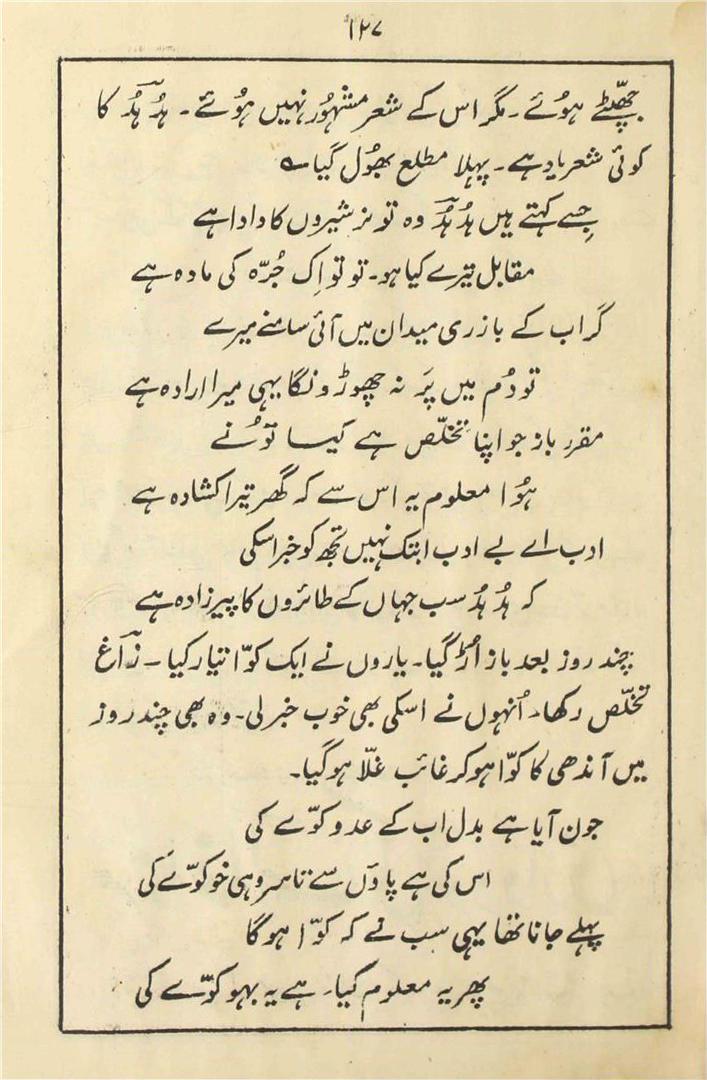 ۱۲۷
جھپٹے ہوُئے ۔ مگر اس کے شعر مشہوُر نہیں ہوُئے ۔ ہُدہُد کا
کوئی شعر یاد ہے ۔ پہلا مطلع بھوُل گیا ؎
جِسے کہتے ہیں ہُدہُد وہ تو نر شیروں کا دادا ہے
مقابل تیرے کیا ہو ۔ تو تو اِک جُرّہ کی مادہ ہے
گر اب کے باز ری میدان میں آئی سامنے میرے
تو دُم میں پَر نہ چھوڑونگا یہی میرا ارادہ ہے
مقرر باز جو اپنا تخلّص ہے کیا توُنے
ہوُا معلوم یہ اس سے کہ گھر تیرا کشادہ ہے
ادب اے بے ادب ابتک نہیں تجھ کو خبر اسکی
کہ ہُدہُد سب جہاں کے طائروں کا پیرزادہ ہے
چند روز بعد باز اُڑ گیا ۔ یاروں نے ایک کوّا تیار کیا ۔ زاغ
تخلّص رکھا ۔ اُنہوں نے اسکی بھی خوب خبر لی ۔ وہ بھی چند روز
میں آندھی کا کوّا ہو کر غائب غلّا ہو گیا ۔
جون آیا ہے بدل اب کے عدو کوّے کی
اس کی ہے پاوَں سے تا سر وہی خو کوّے کی
پہلے جانا تھا یہی سب نے کہ کوّا ہوگا
پھر یہ معلوم کیا ۔ ہے یہ بہو کوّے کی